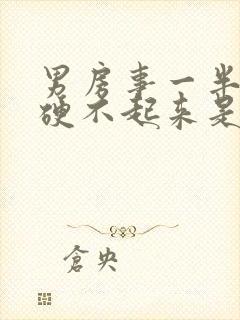 男房事一半
硬不起来是
倉央